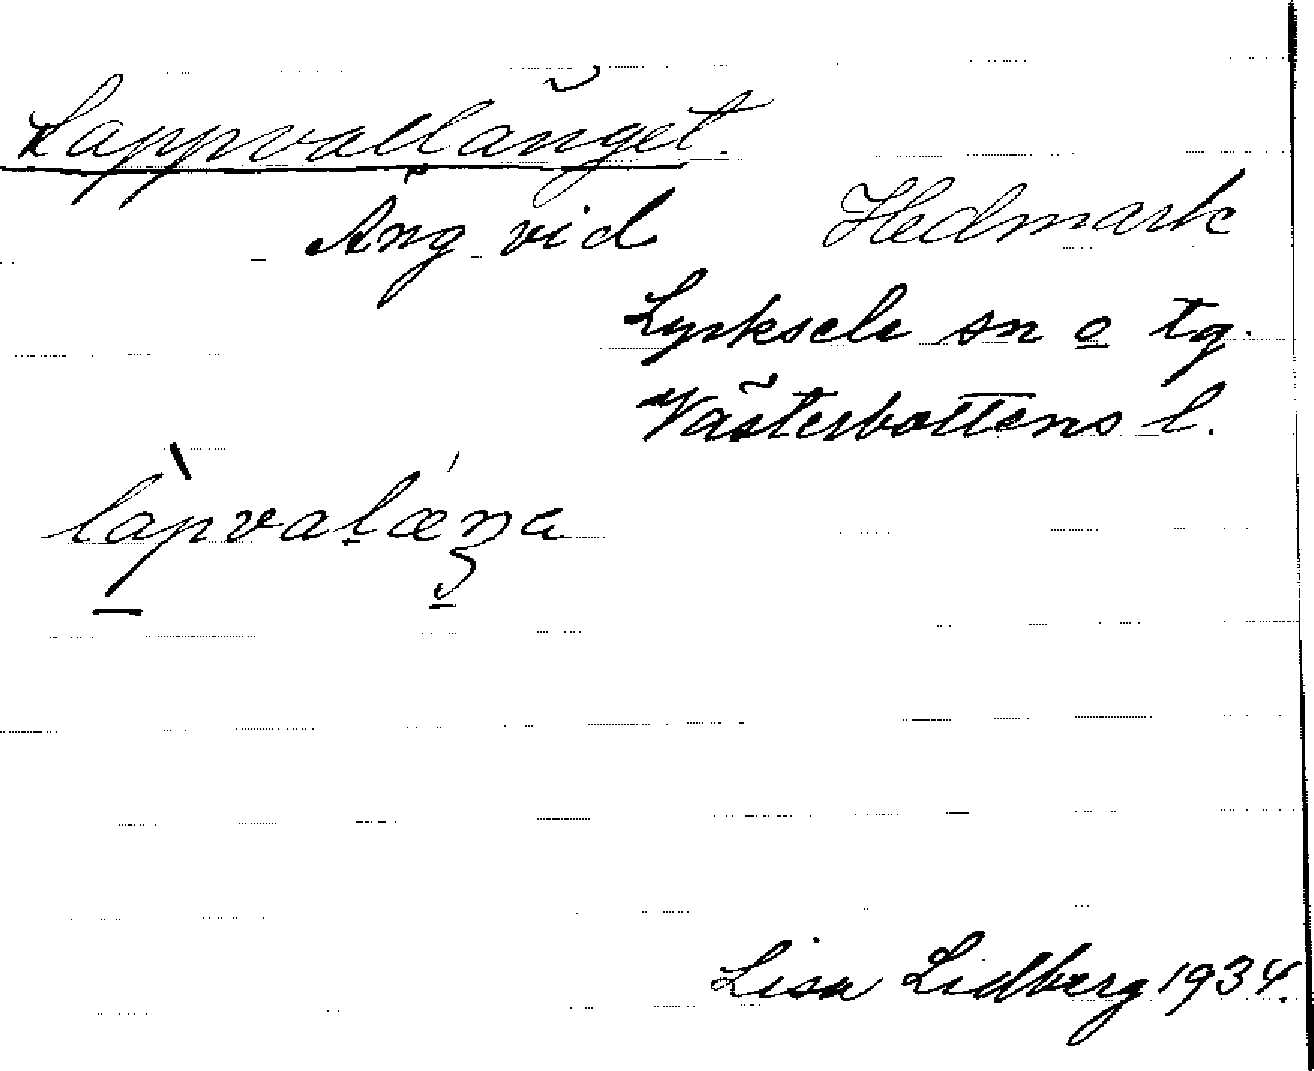 Lappvallänget.
Äng vid Hedmark
Lycksele sn o tg.
Västerbottens l.
làpvalæŋa
Lisa Lidberg 1934.